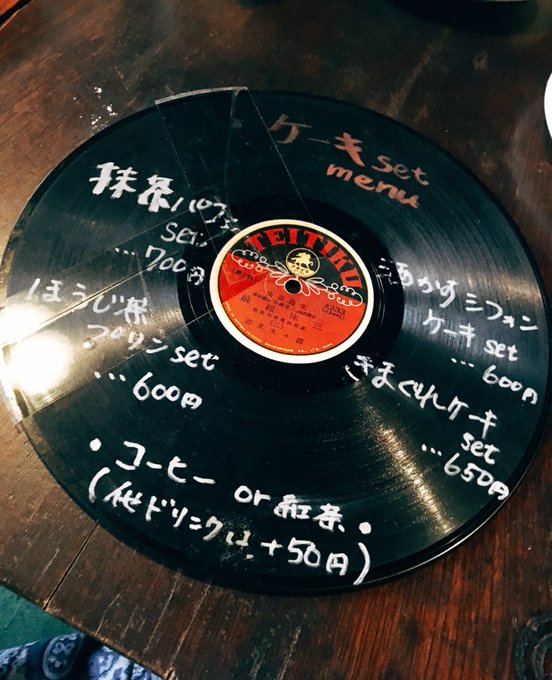 ケーキset
menu
抹茶パフェ
set
...700円
ほうじ茶
プリンset
...600円
酒かすシフォン
ケーキset
...600円
きまぐれケーキ
set
...650円
・コーヒー or 紅茶・
(他ドリンクは+50円)
TEITIKU
A233
三味線